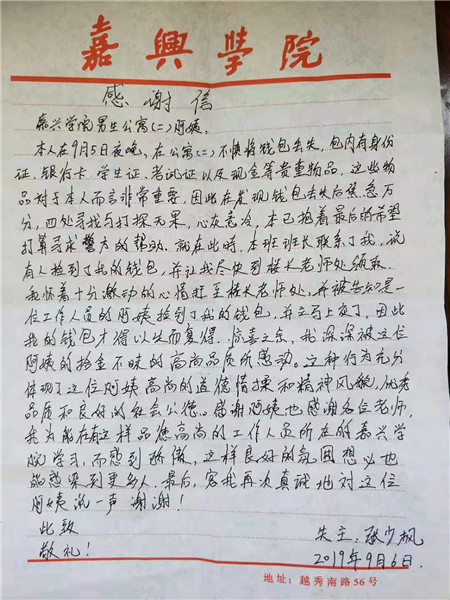 嘉興學院
感谢信
嘉兴学院男生公寓(二)阿姨.
本人在9月5日夜晚,在公寓(二)不慎将钱包丢失,包内有身份
证.银行卡 学生证.考试证以及现金等贵重物品,这些物
品对于本人而言非常重要,因此在发现钱包丢失后焦急万
分,四处寻找与打探无果,心灰意冷,本已抱着最后的希望
打算寻求警方的帮助.就在此时,本班班长联系了我,说
有人捡到了我的钱包,并让我尽快到楼长老师处领取.
我怀着十分激动的心情赶至楼长老师处,并被告知是一
位工作人员的阿姨捡到了我的钱包,并立马上交了,因此
我的钱包才得以失而复得.惊喜之余,我深深被这位
阿姨的拾金不昧的高尚品质所感动。这种行为充分
体现了这位阿姨高尚的道德情操和精神风貌,优秀
品质和良好的社会公德。感谢阿姨也感谢各位老师,
我为能在有这样品德高尚的工作人员所在的嘉兴学
院学习,而感到骄傲,这样良好的氛围想必也
能感染到更多人.最后,容我再次真诚地对这位
阿姨说一声谢谢!
此致
敬礼!
失主:张少枫
2019年9月6日.
地址:越秀南路56号